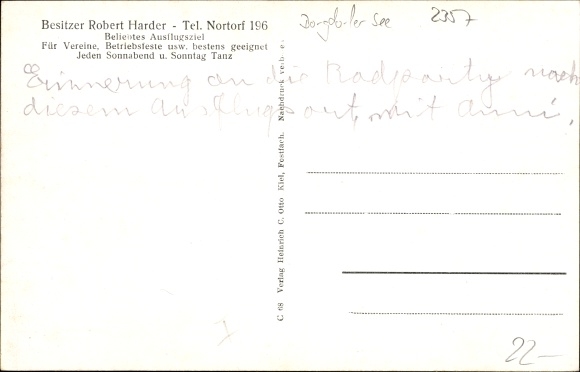 Besitzer Robert Harder - Tel. Nortorf 196
Beliebtes Ausflugsziel
Für Vereine, Betriebsfeste usw. bestens geeignet
Jeden Sonnabend u. Sonntag Tanz
See 2357
Erinnerung an die Radpartie nach
diesem Ausflugsort, mit Anni,
C 68 Verlag Heinrich C. Otto Kiel, Postfach. Nachdruck verb
22-